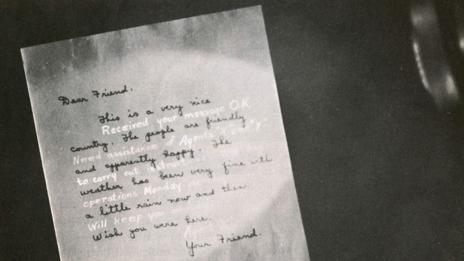 Dear Friend.
This is a very nice
Received your message O.K.
country. The people are friendly
Need assistance of Agent
and apparently happy. The
to carry out
weather has been very fine with
operations Monday
a little rain now and then.
Will keep you
Wish you were here.
Your Friend.